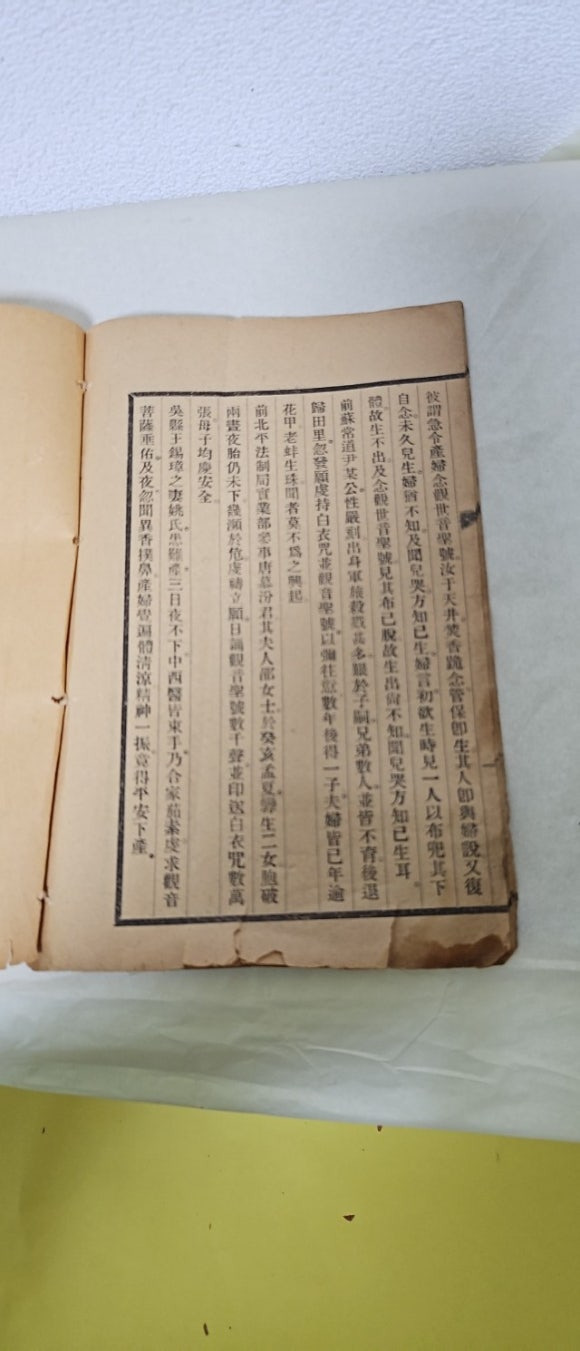 彼謂急令產婦念觀世音聖號汝于天井焚香跪念管保卽生其人卽與婦說又復
自念未久兒生婦猶不知及聞兒哭方知已生婦言初欲生時見一人以布兜其下
體故生不出及念觀世音聖號見其布已脫故生出尙不知聞兒哭方知已生耳。
前蘇常道尹某公性嚴刻出身軍旅殺戮甚多艱於子嗣兄弟數人並皆不育後退
歸田里忽發願虔持白衣咒並觀音聖號以彌往愆數年後得一子夫婦皆已年逾
花甲老蚌生珠聞者莫不爲之興起
前北平法制局實業部參事唐慕汾君其夫人邵女士於癸亥孟夏孿生二女胞破
兩晝夜胎仍未下幾瀕於危虔禱立願日誦觀音聖號數千聲並印送白衣咒數萬
張母子均慶安全
吳縣王錫璋之妻姚氏患難產三日夜不下中西醫皆束手乃合家茹素虔求觀音
菩薩垂佑及夜忽聞異香撲鼻產婦覺遍體清凉精神一振竟得平安下產。